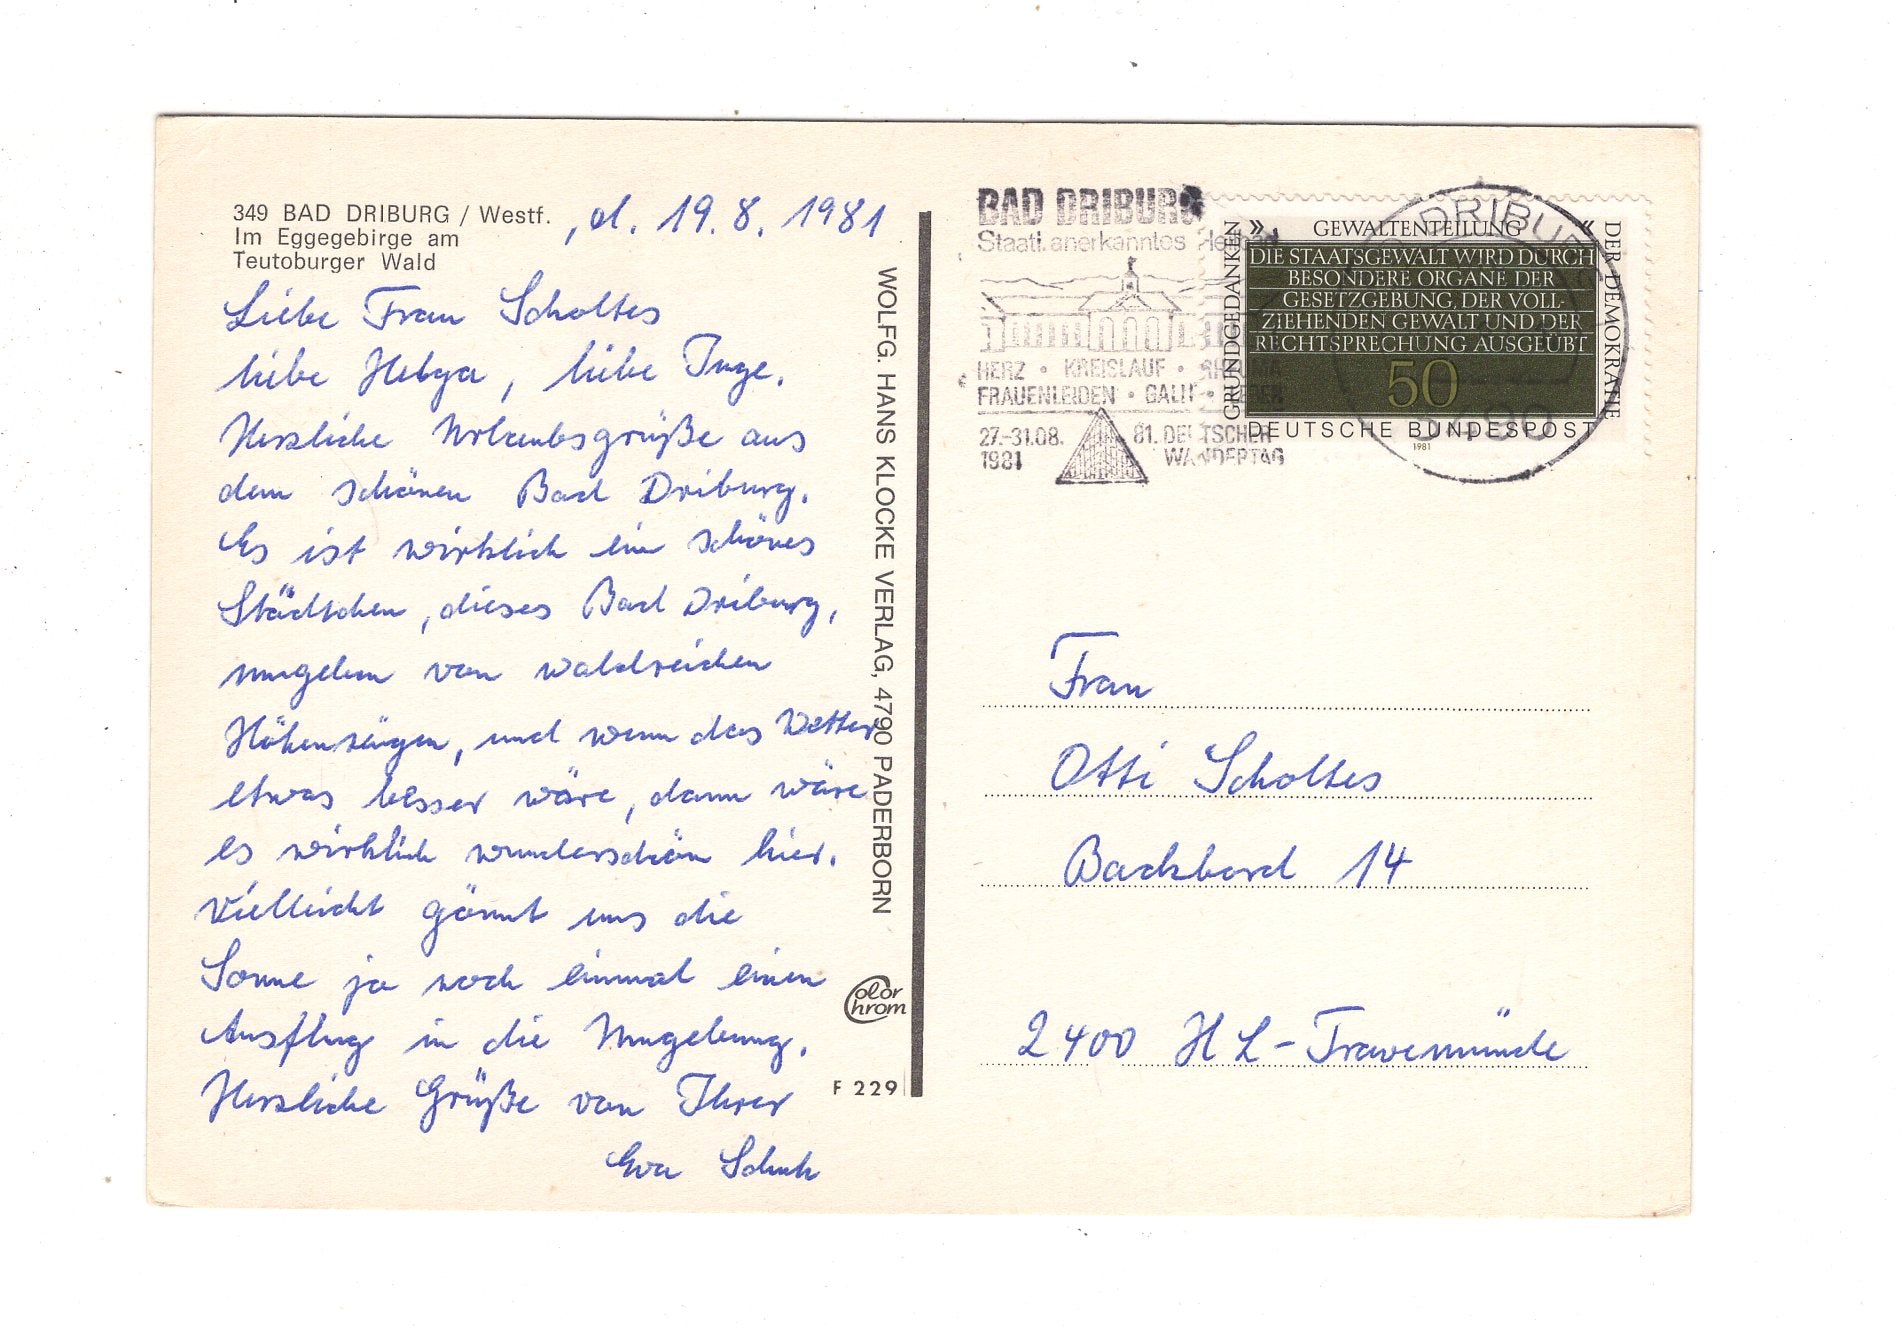 349 BAD DRIBURG / Westf.
Im Eggegebirge am
Teutoburger Wald
, d. 19.8.1981
Liebe Frau Scholtes
liebe Helga, liebe Inge.
Herzliche Urlaubsgrüße aus
dem schönen Bad Driburg.
Es ist wirklich ein schönes
Städtchen, dieses Bad Driburg,
umgeben von waldreichen
Höhenzügen, und wenn das Wetter
etwas besser wäre, dann wäre
es wirklich wunderschön hier.
Vielleicht gönnt uns die
Sonne ja noch einmal einen
Ausflug in die Umgebung.
Herzliche Grüße von Ihrer
Eva Schuh
WOLFG. HANS KLOCKE VERLAG, 4790 PADERBORN
Color
Chrom
F 229
BAD DRIBURG
Staatl. anerkanntes Heilbad
HERZ · KREISLAUF · RHEUMA
FRAUENLEIDEN · GALLE · LEBER
27.-31.08.
1981
81. DEUTSCHER
WANDERTAG
DRIBURG
3490
GRUNDGEDANKEN
» GEWALTENTEILUNG «
DER DEMOKRATIE
DIE STAATSGEWALT WIRD DURCH
BESONDERE ORGANE DER
GESETZGEBUNG, DER VOLL-
ZIEHENDEN GEWALT UND DER
RECHTSPRECHUNG AUSGEÜBT
50
DEUTSCHE BUNDESPOST
1981
Frau
Otti Scholtes
Backbord 14
2400 HL-Travemünde